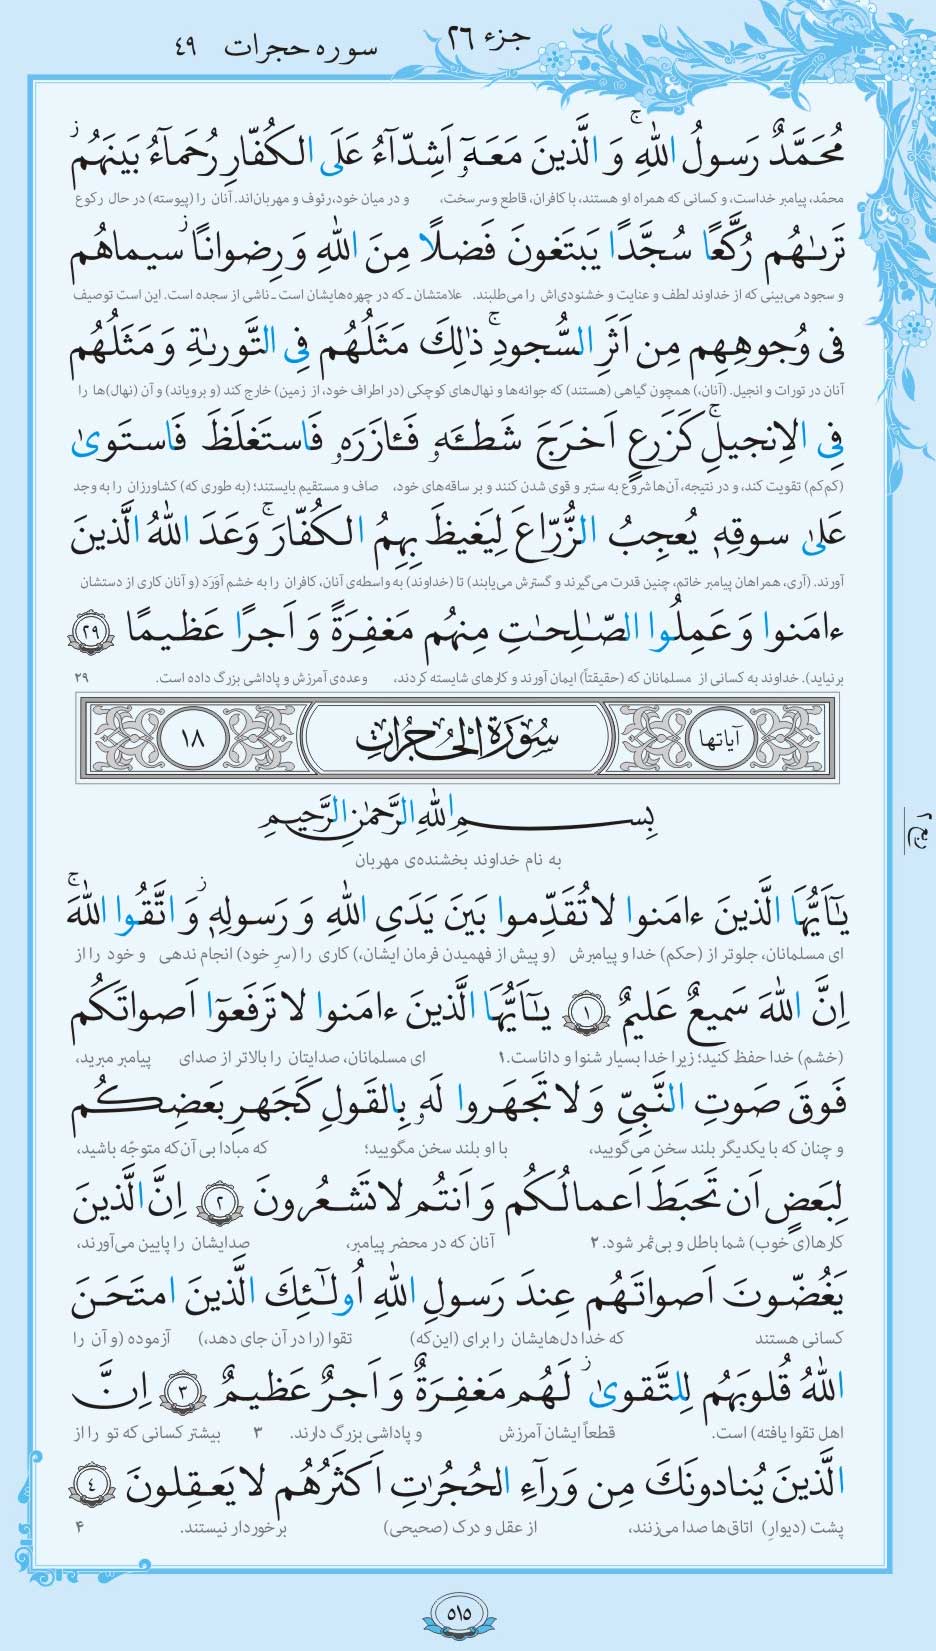 جزء ۲۶
سوره حجرات ۴۹
مُحَمَّدٌ رَسولُ اللّٰهِ ۚ وَ الَّذینَ مَعَهٗۤ اَشِدّآءُ عَلَی الکُفّارِ رُحَمآءُ بَینَهُم ۖ
محمّد، پیامبر خداست، و کسانی که همراه او هستند، با کافران، قاطع و سرسخت، و در میان خود، رئوف و مهربان‌اند. آنان را (پیوسته) در حال رکوع
تَرىٰهُم رُکَّعًا سُجَّدًا یَبتَغونَ فَضلًا مِنَ اللّٰهِ وَ رِضوانًا ۖ سیماهُم
و سجود می‌بینی که از خداوند لطف و عنایت و خشنودی‌اش را می‌طلبند. علامتشان ـ که در چهره‌هایشان است ـ ناشی از سجده است. این است توصیف
فی وُجوهِهِم مِن اَثَرِ السُّجودِ ۚ ذٰلِکَ مَثَلُهُم فِی التَّورىٰةِ وَ مَثَلُهُم
آنان در تورات و انجیل. (آنان،) همچون گیاهی (هستند) که جوانه‌ها و نهال‌های کوچکی (در اطراف خود، از زمین) خارج کند (و برویاند) و آن (نهال)ها را
فِی الاِنجیلِ ۚ کَزَرعٍ اَخرَجَ شَطـَٔهٗ فَـٔازَرَهٗ فَاستَغلَظَ فَاستَوىٰ
(کم‌کم) تقویت کند، و در نتیجه، آن‌ها شروع به ستبر و قوی شدن کنند و بر ساقه‌های خود، صاف و مستقیم بایستند؛ (به طوری که) کشاورزان را به وجد
عَلىٰ سوقِهٖ یُعجِبُ الزُّرّاعَ لِیَغیظَ بِهِمُ الکُفّارَ ۚ وَعَدَ اللّٰهُ الَّذینَ
آورند. (آری، همراهان پیامبر خاتم، چنین قدرت می‌گیرند و گسترش می‌یابند) تا (خداوند) به واسطه‌ی آنان، کافران را به خشم آوَرَد (و آنان کاری از دستشان
ءامَنوا وَ عَمِلُوا الصّـٰلِحـٰتِ مِنهُم مَغفِرَةً وَ اَجرًا عَظیمًا ۲۹
برنیاید). خداوند به کسانی از مسلمانان که (حقیقتاً) ایمان آورند و کارهای شایسته کردند، وعده‌ی آمرزش و پاداشی بزرگ داده است. ۲۹
آیاتها سُورَةُ الحُجُرات ۱۸
بِسمِ اللّٰهِ الرَّحمٰنِ الرَّحیمِ
به نام خداوند بخشنده‌ی مهربان
ربع ۲
یـٰۤاَیُّهَا الَّذینَ ءامَنوا لا تُقَدِّموا بَینَ یَدَیِ اللّٰهِ وَ رَسولِهٖ ۖ وَ اتَّقُوا اللّٰهَ ۚ
ای مسلمانان، جلوتر از (حکم) خدا و پیامبرش (و پیش از فهمیدن فرمان ایشان،) کاری را (سرِ خود) انجام ندهی و خود را از
اِنَّ اللّٰهَ سَمیعٌ عَلیمٌ ۱ یـٰۤاَیُّهَا الَّذینَ ءامَنوا لا تَرفَعوۤا اَصواتَکُم
(خشم) خدا حفظ کنید؛ زیرا خدا بسیار شنوا و داناست. ۱ ای مسلمانان، صدایتان را بالاتر از صدای پیامبر مبرید،
فَوقَ صَوتِ النَّبِیِّ وَ لا تَجهَروا لَهٗ بِالقَولِ کَجَهرِ بَعضِکُم
و چنان که با یکدیگر بلند سخن می‌گویید، با او بلند سخن مگویید؛ که مبادا بی آن‌که متوجّه باشید،
لِبَعضٍ اَن تَحبَطَ اَعمالُکُم وَ اَنتُم لا تَشعُرونَ ۲ اِنَّ الَّذینَ
کارها(ی خوب) شما باطل و بی‌ثمر شود. ۲ آنان که در محضر پیامبر، صدایشان را پایین می‌آورند،
یَغُضّونَ اَصواتَهُم عِندَ رَسولِ اللّٰهِ اُولـٰۤئِکَ الَّذینَ امتَحَنَ
کسانی هستند که خدا دل‌هایشان را برای (این‌که) تقوا (را در آن جای دهد،) آزموده (و آن را
اللّٰهُ قُلوبَهُم لِلتَّقوىٰ ۖ لَهُم مَغفِرَةٌ وَ اَجرٌ عَظیمٌ ۳ اِنَّ
اهل تقوا یافته) است. قطعاً ایشان آمرزش و پاداشی بزرگ دارند. ۳ بیشتر کسانی که تو را از
الَّذینَ یُنادونَکَ مِن وَرآءِ الحُجُرٰتِ اَکثَرُهُم لا یَعقِلونَ ۴
پشت (دیوارِ) اتاق‌ها صدا می‌زنند، از عقل و درک (صحیحی) برخوردار نیستند. ۴
۵۱۵